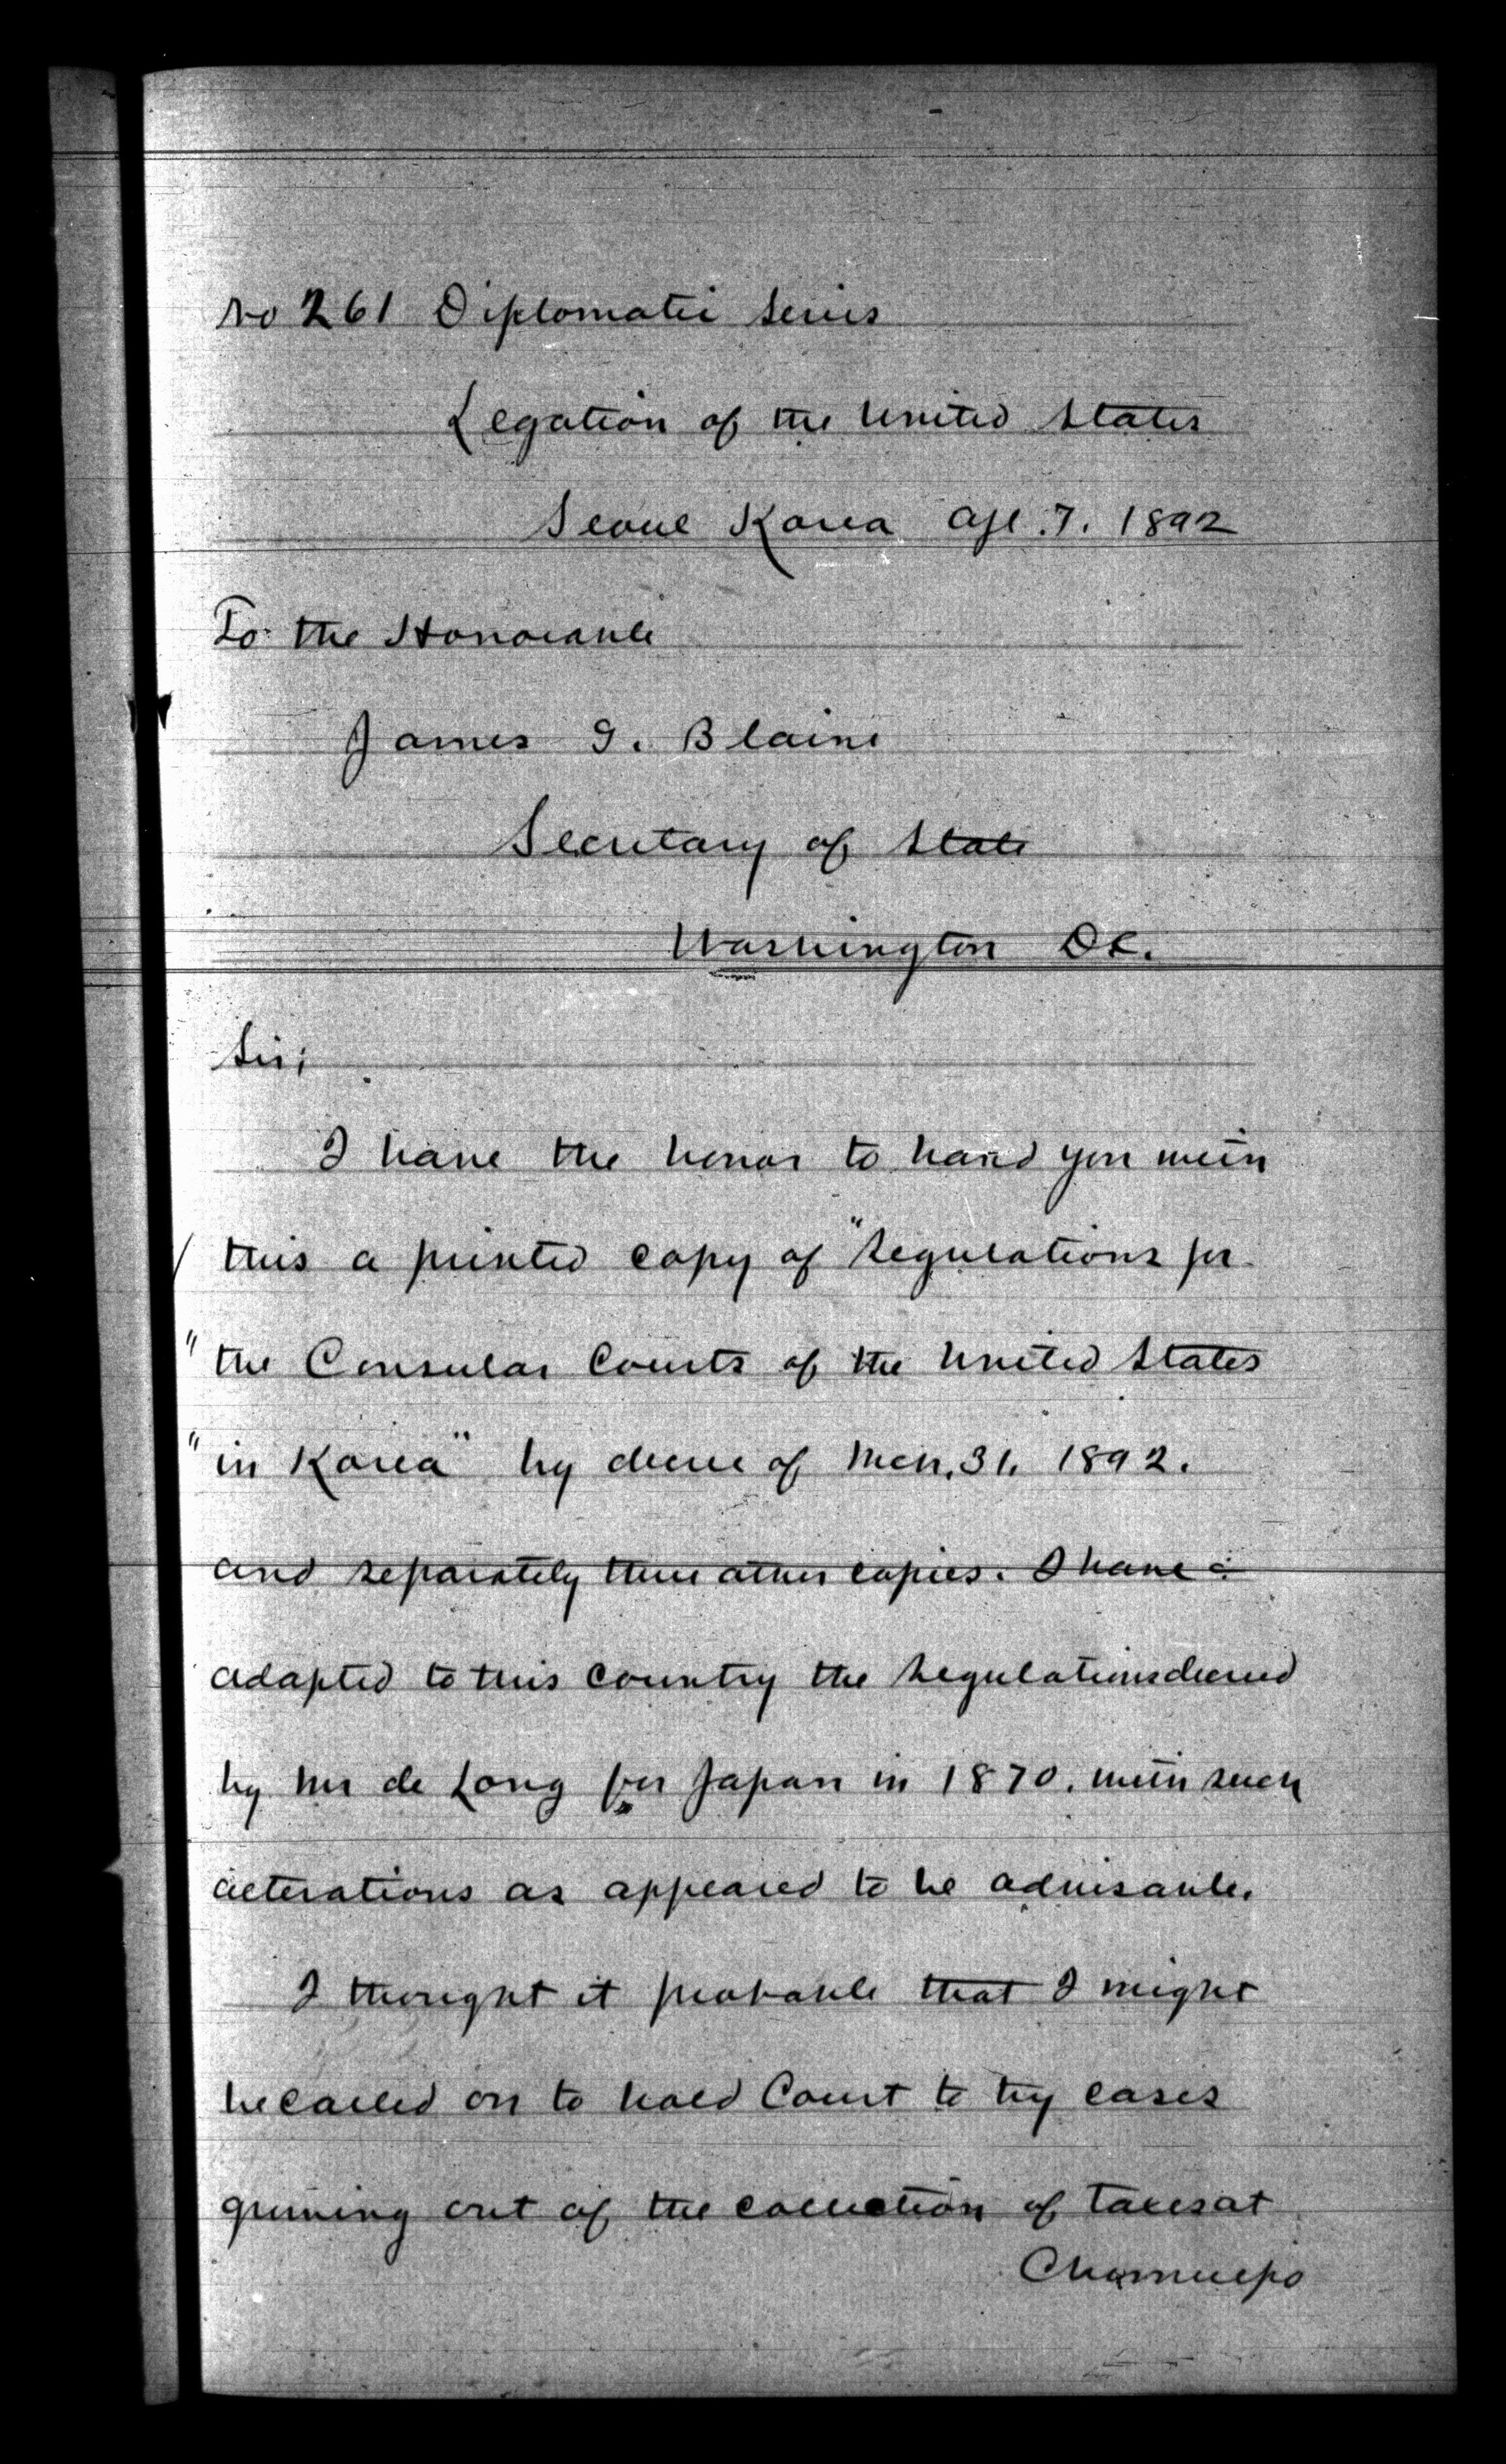 No 261 Diplomatic Series
Legation of the United States
Seoul Korea Apl. 7. 1892
To the Honorable
James G. Blaine
Secretary of State
Washington D.C.
Sir;
I have the honor to hand you with
/ this a printed copy of "Regulations for
" the Consular Courts of the United States
" in Korea" by decree of Mch. 31. 1892.
and separately three other copies. I have
adapted to this country the Regulations decreed
by Mr de Long for Japan in 1870. with such
alterations as appeared to be advisable.
I thought it probable that I might
be called on to hold Court to try cases
growing out of the collection of taxes at
Chemulpo